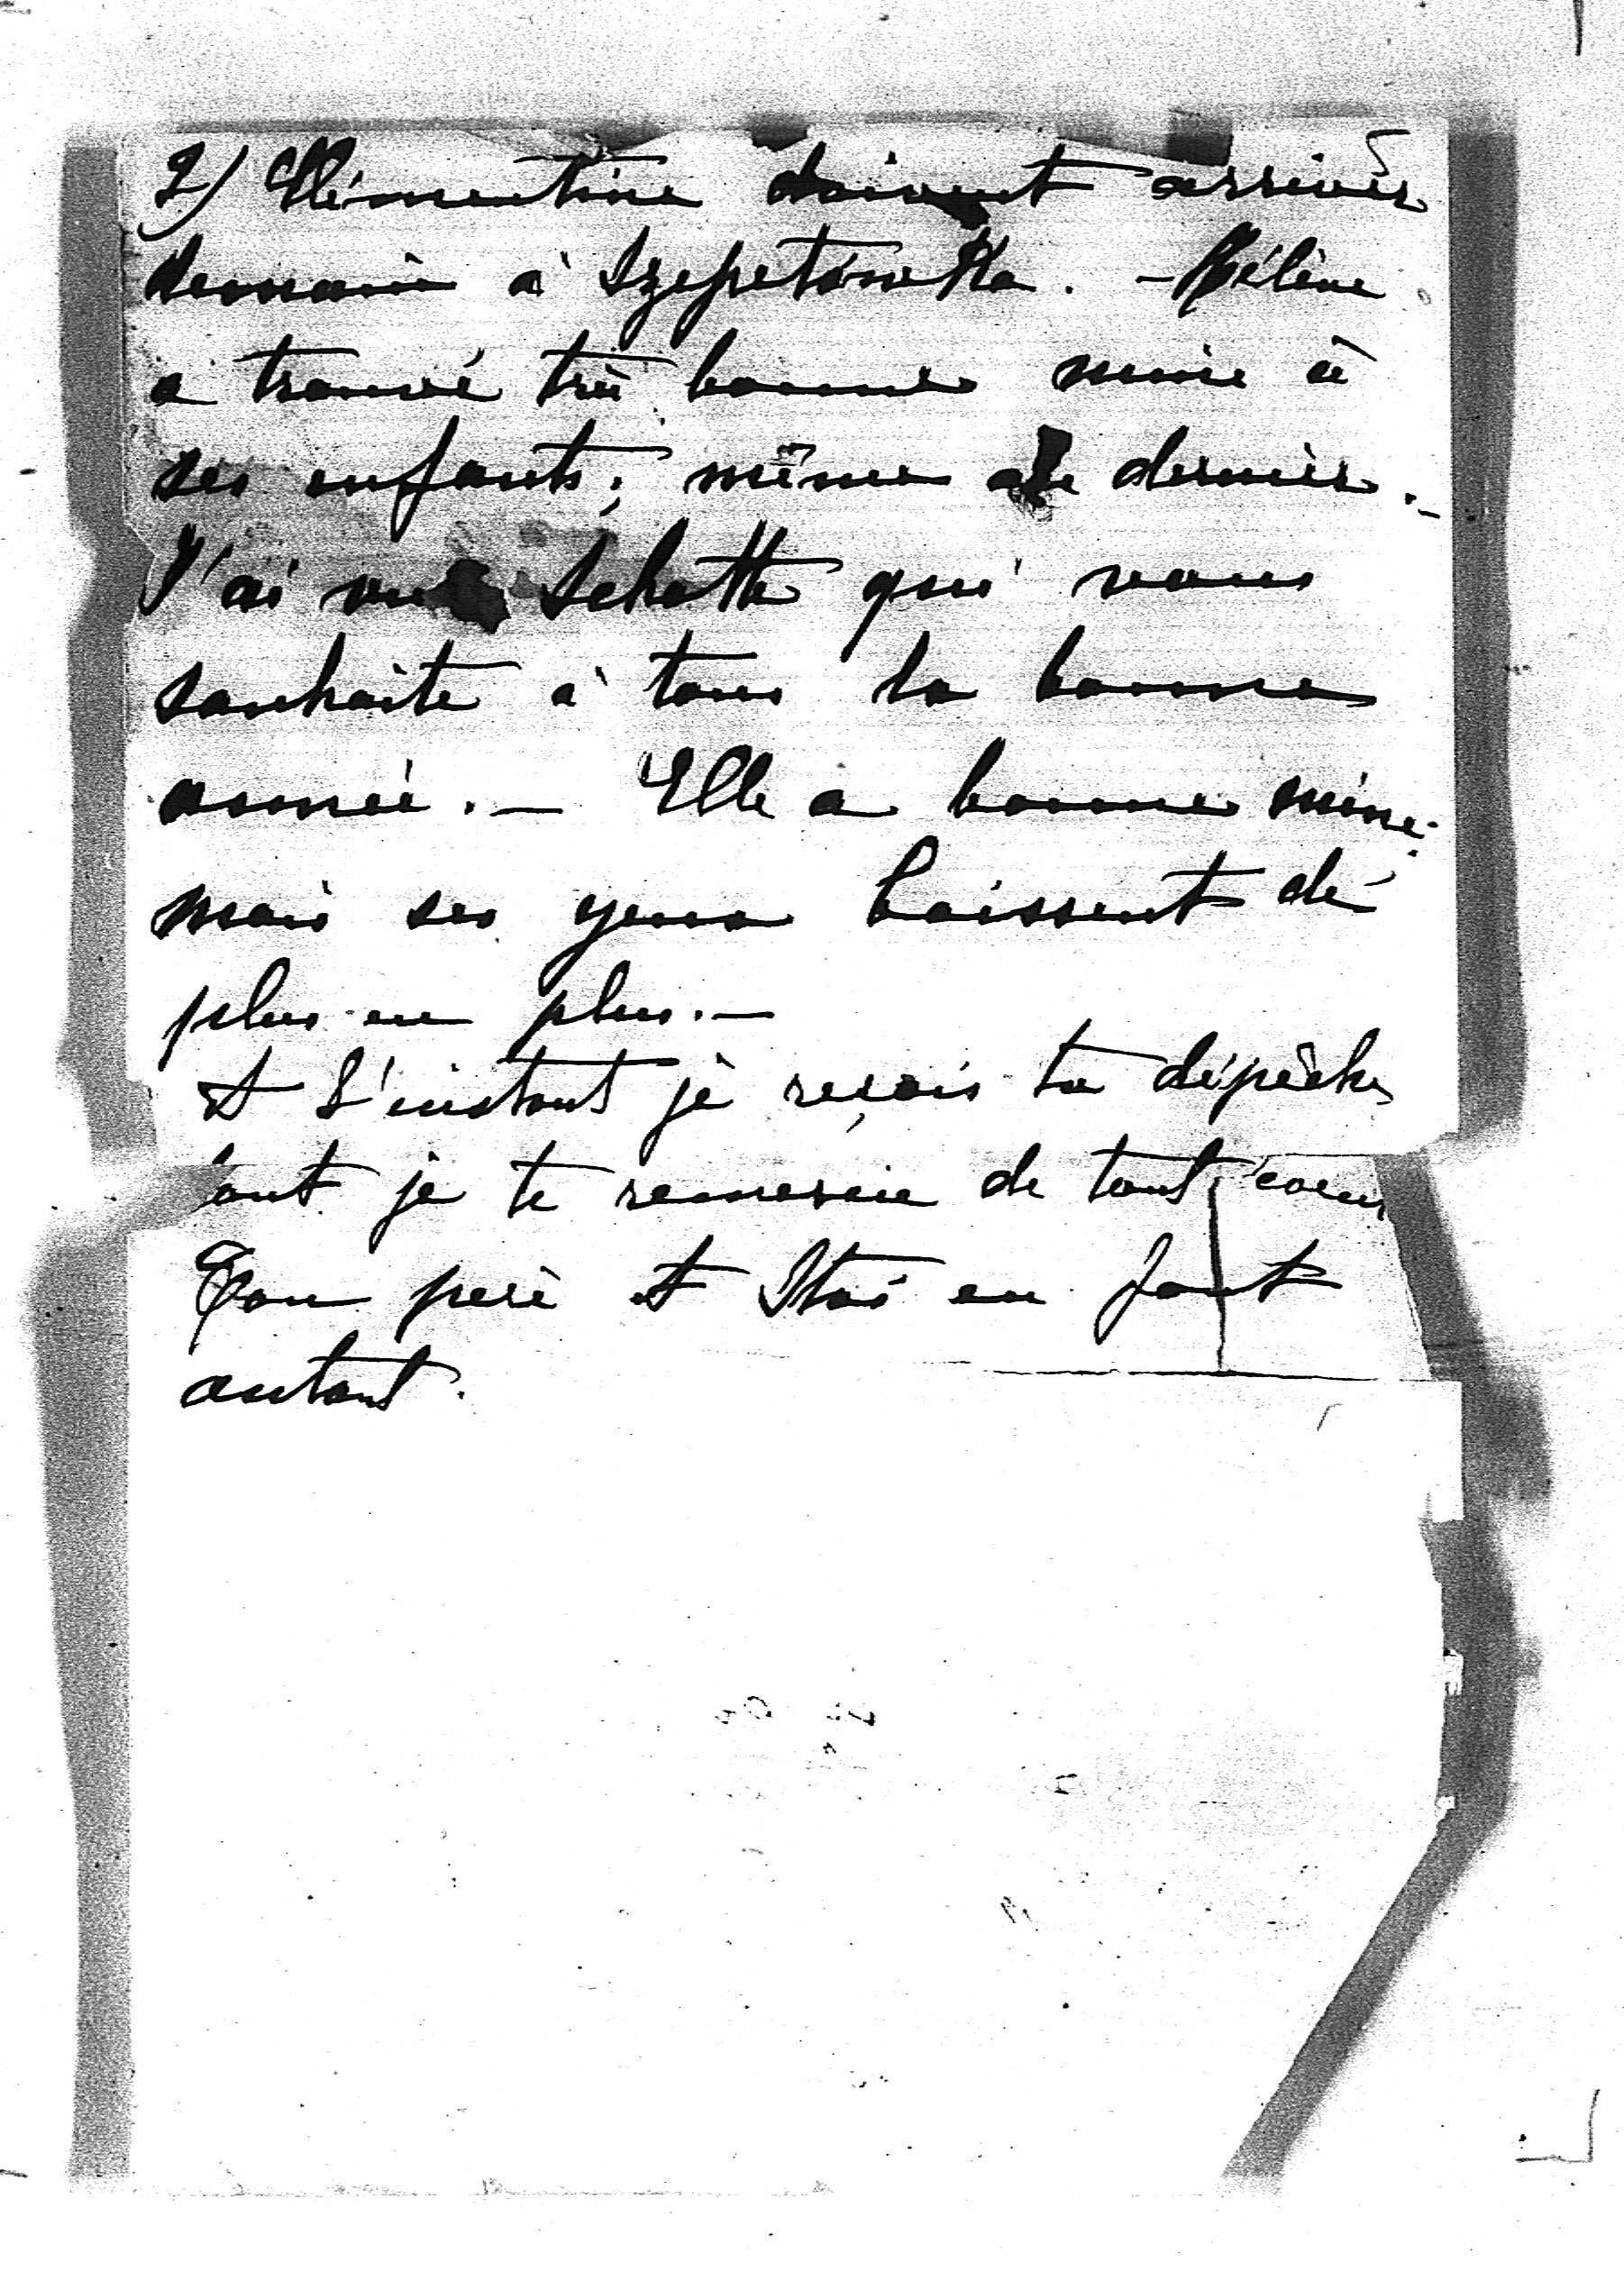 2) Clémentine doivent arriver
demain à Szepetówka. - Hélène
a trouvé très bonne mine à
ses enfants; même au dernier.-
J'ai vu Schatte qui vous
souhaite à tous la bonne
année. - Elle a bonne mine;
mais ses yeux baissent de
plus en plus. -
A l'instant je reçois ta dépêche
dont je te remercie de tout coeur
Ton père et Stas en font
autant.